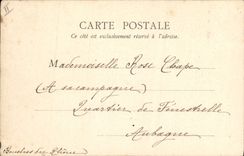 CARTE POSTALE
Ce côté est exclusivement réservé à l'adresse.
Mademoiselle Rose Chape
(A sa campagne)
Quartier de Finestrelle
Aubagne
Bouches du Rhône